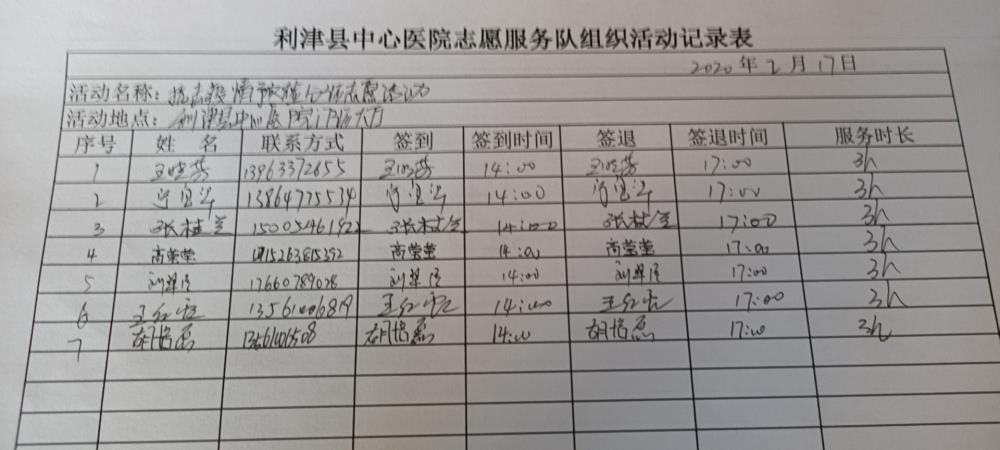 利津县中心医院志愿服务队组织活动记录表
2020年2月17日
活动名称：抗击疫情预检分诊志愿活动
活动地点：利津县中心医院门诊大厅
序号 姓名 联系方式 签到 签到时间 签退 签退时间 服务时长
1 王晓芳 13963372655 王晓芳 14:00 王晓芳 17:00 3h
2 13864775534 14:00 17:00 3h
3 张桂兰 15005461922 张桂兰 14:00 张桂兰 17:00 3h
4 高莹莹 15263815392 高莹莹 14:00 高莹莹 17:00 3h
5 17660789028 14:00 17:00 3h
6 王红 13561006819 王红 14:00 王红 17:00 3h
7 胡 14:00 胡 17:00 3h